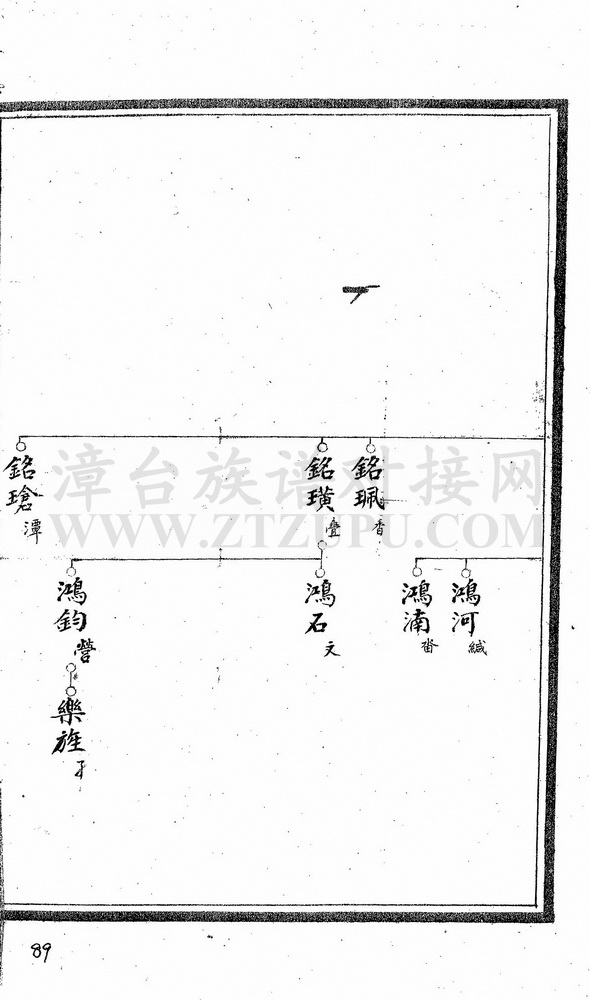 銘珮 香
銘璜 疊
銘瑲 潭
鴻河 緘
鴻湳 畨
鴻石 文
鴻鈞 營
樂旌
漳台族谱对接网
WWW.ZTZUPU.COM
89